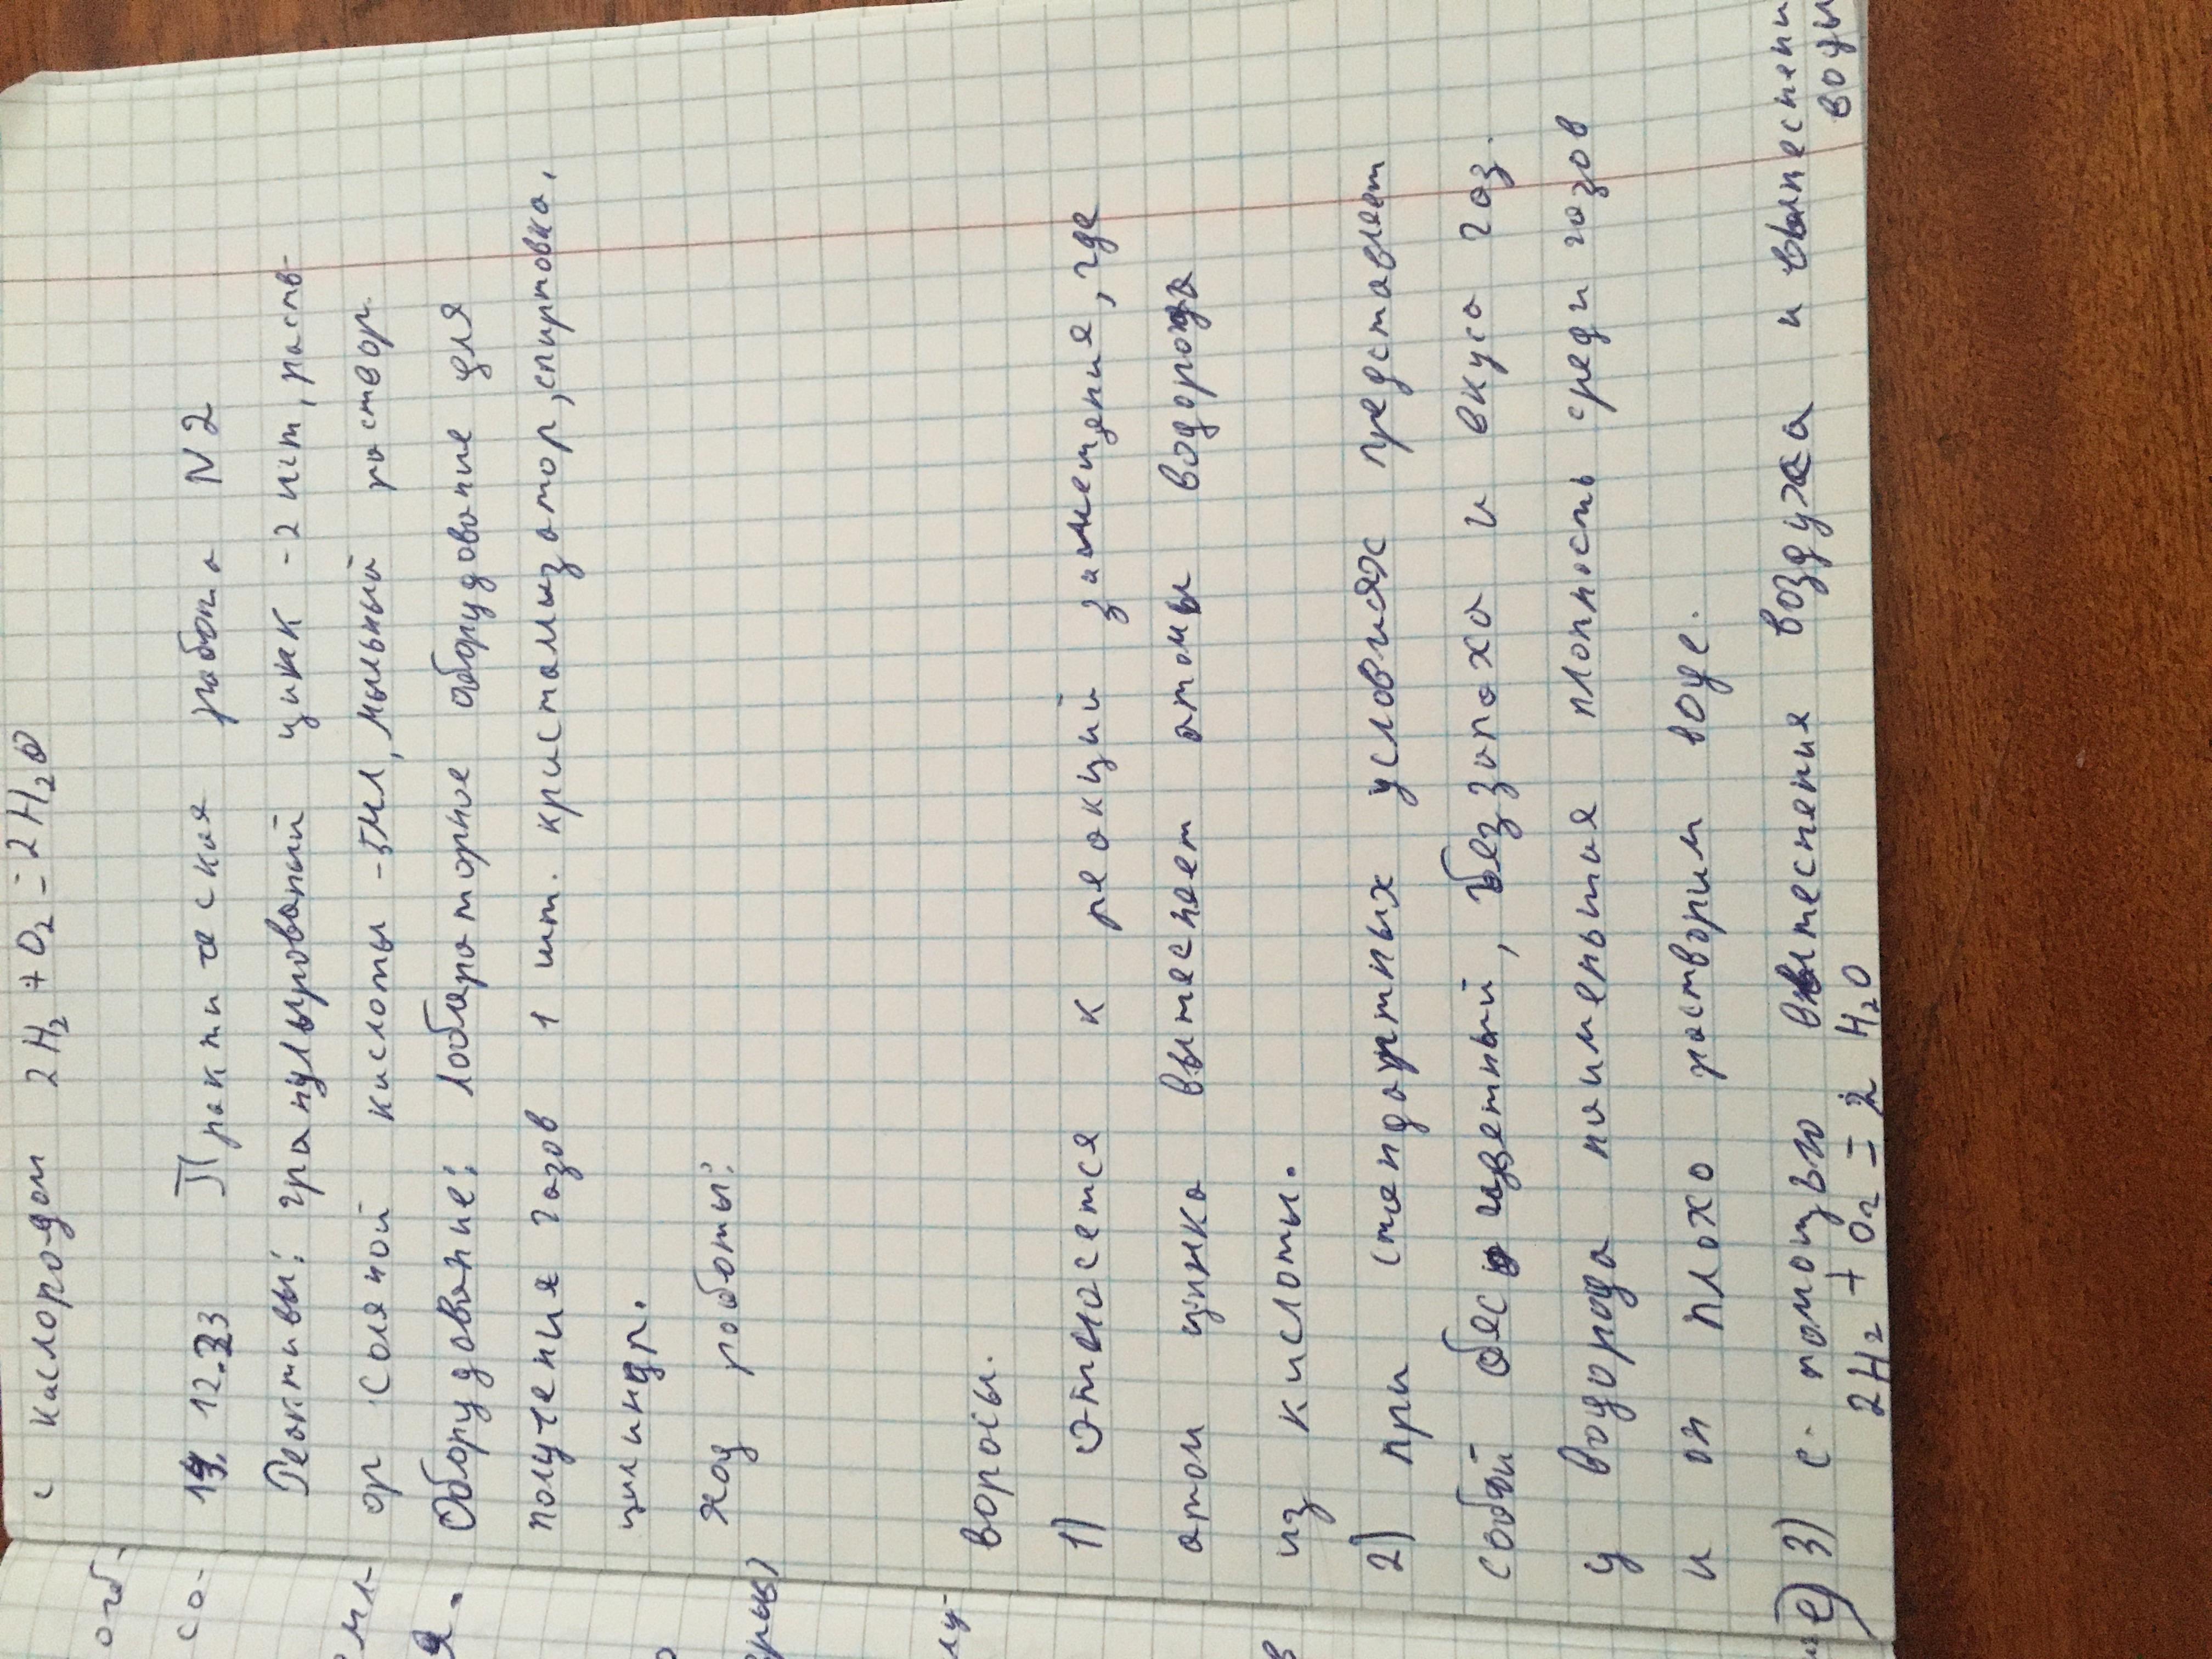 с кислородом 2H2 + O2 = 2H2O
19. 12.23 Практическая работа N2
Реактивы: гранулыровапый цинк - 2 шт, раств-
ор Соляной кислоты - 5мл, мыльный раствор
Оборудование: лоблараторное оборудование для
получения газов 1 шт. кристализатор, спиртовка,
цилиндр.
ход работы:
воросы.
1) относется к реакций замещения, где
атом цинка вытеснеет атомы водорода
из кислоты.
2) При стандартных условиях представлеет
собой бес цветный, без запаха и вкуса газ.
у водорода наименьшая плотность среди газов
и он плохо растворим воде.
3) с помощью вытеснения воздуха и вытеснени
воды
2H2 + O2 = 2 H2O
огб.
со-
мл-
я.
ры)
лу-
в
е)